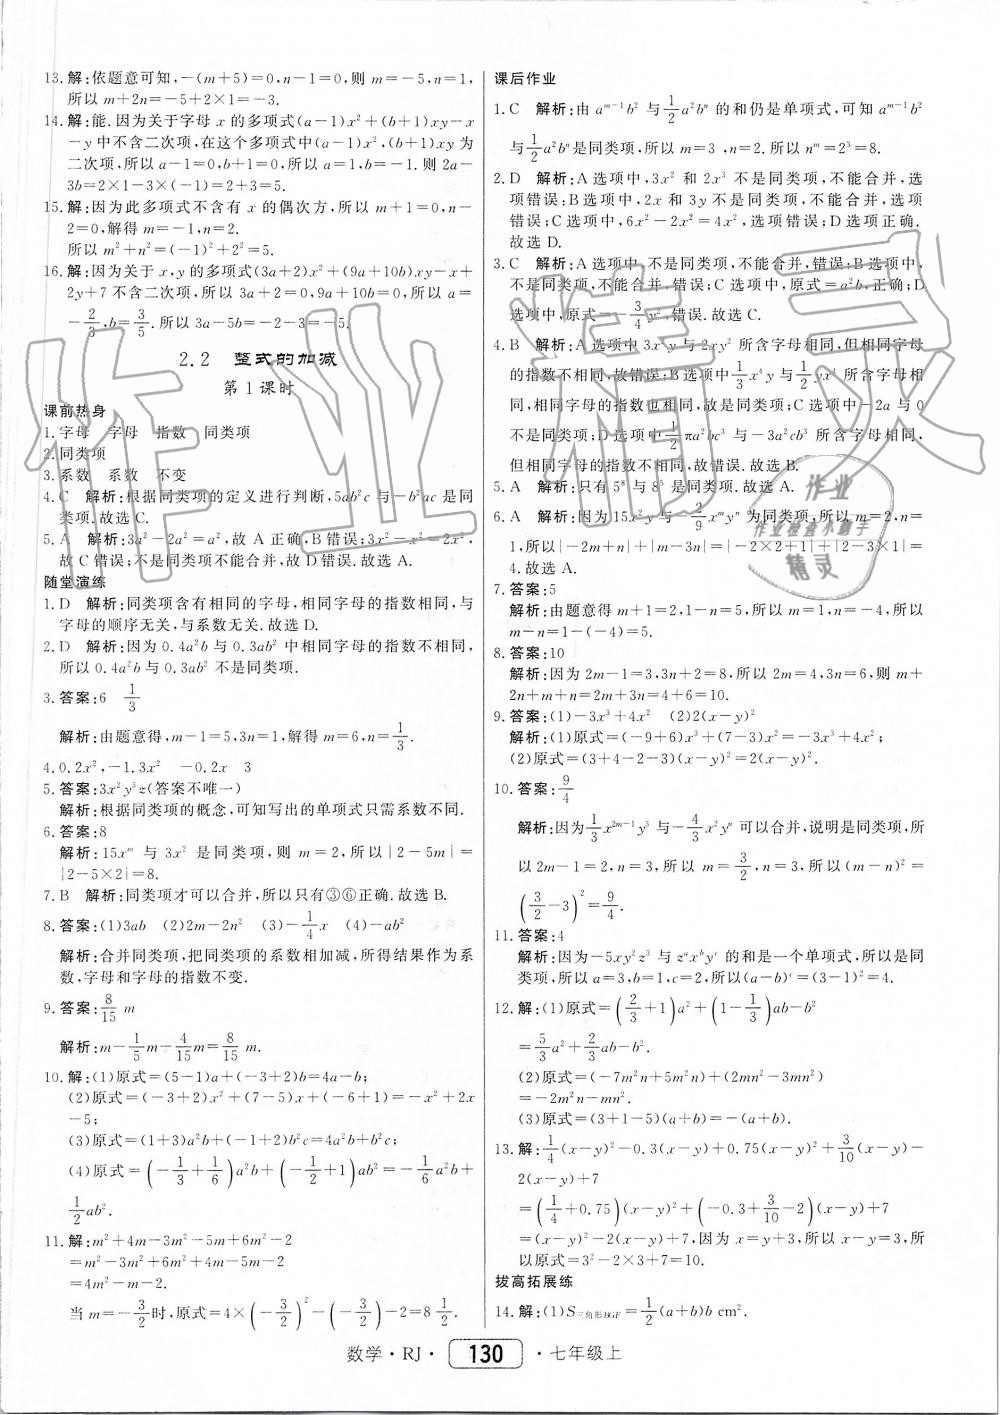 13.解:依题意可知,-(m+5)=0,n-1=0,则 m=-5,n=1,
所以 m+2n=-5+2×1=-3.
14.解:能.因为关于字母 x 的多项式(a-1)x²+(b+1)xy-x
-y 中不含二次项,在这个多项式中(a-1)x²,(b+1)xy 为
二次项,所以 a-1=0,b+1=0,所以 a=1,b=-1. 则 2a-
3b=2×1-3×(-1)=2+3=5.
15.解:因为此多项式不含有 x 的偶次方,所以 m+1=0,n-
2=0,解得 m=-1,n=2.
所以 m²+n²=(-1)²+2²=5.
16.解:因为关于 x,y 的多项式(3a+2)x²+(9a+10b)xy-x+
2y+7 不含二次项,所以 3a+2=0,9a+10b=0,所以 a=
-2/3,b=3/5.所以 3a-5b=-2-3=-5.
2.2 整式的加减
第 1 课时
课前热身
1.字母 字母 指数 同类项
2.同类项
3.系数 系数 不变
4.C 解析:根据同类项的定义进行判断,5ab²c 与-b²ac 是同
类项.故选 C.
5.A 解析:3a²-2a²=a²,故 A 正确,B 错误;3x²-x²=2x²,
故 C 错误;不是同类项不能合并,故 D 错误.故选 A.
随堂演练
1.D 解析:同类项含有相同的字母,相同字母的指数相同,与
字母的顺序无关,与系数无关.故选 D.
2.D 解析:因为 0.4a²b 与 0.3ab² 中相同字母的指数不相同,
所以 0.4a²b 与 0.3ab² 不是同类项.
3.答案:6 1/3
解析:由题意得,m-1=5,3n=1,解得 m=6,n=1/3.
4.0.2x²,-1.3x² -0.2x 3
5.答案:3x²y³z(答案不唯一)
解析:根据同类项的概念,可知写出的单项式只需系数不同.
6.答案:8
解析:15xᵐ 与 3x² 是同类项,则 m=2,所以|2-5m|=
|2-5×2|=8.
7.B 解析:同类项才可以合并,所以只有③⑥正确.故选 B.
8.答案:(1)3ab (2)2m-2n² (3)-1/4x (4)-ab²
解析:合并同类项,把同类项的系数相加减,所得结果作为系
数,字母和字母的指数不变.
9.答案:8/15 m
解析:m-1/5m-4/15m=8/15 m.
10.解:(1)原式=(5-1)a+(-3+2)b=4a-b;
(2)原式=(-3+2)x²+(7-5)x+(-6+1)=-x²+2x
-5;
(3)原式=(1+3)a²b+(-1+2)b²c=4a²b+b²c;
(4)原式=(-1/3+1/6)a²b+(-1/2+1)ab²=-1/6a²b+
1/2ab².
11.解:m²+4m-3m²-5m+6m²-2
=m²-3m²+6m²+4m-5m-2
=4m²-m-2.
当 m=-3/2时,原式=4×(-3/2)²-(-3/2)-2=8 1/2.
课后作业
1.C 解析:由 aᵐ⁻¹b² 与1/2a²bⁿ 的和仍是单项式,可知 aᵐ⁻¹b²
与1/2a²bⁿ是同类项,所以 m=3 ,n=2. 所以 nᵐ=2³=8.
2.D 解析:A 选项中,3x² 和 2x³ 不是同类项,不能合并,选
项错误;B 选项中,2x 和 3y 不是同类项,不能合并,选项
错误;C 选项中,6x²-2x²=4x²,选项错误;D 选项正确.
故选 D.
3.C 解析:A 选项中,不是同类项,不能合并,错误;B 选项中,
不是同类项,不能合并,错误;C 选项中,原式=a²b,正确;D
选项中,原式=-3/4y²,错误.故选 C.
4.B 解析:A 选项中 3x²y 与 2xy² 所含字母相同,但相同字母
的指数不相同,故错误;B 选项中1/3x⁴y 与1/2yx⁴ 所含字母相
同,相同字母的指数也相同,故是同类项;C 选项中-2a 与 0
不是同类项;D 选项中1/2πa²bc³ 与-3a²cb³ 所含字母相同,
但相同字母的指数不相同,故错误.故选 B.
5.A 解析:只有 5⁸ 与 8⁵ 是同类项.故选 A.
6.A 解析:因为 15x²y 与-2/9xᵐyⁿ 为同类项,所以 m=2,n=
1,所以|-2m+n|+|m-3n|=|-2×2+1|+|2-3×1|=
4.故选 A.
7.答案:5
解析:由题意得 m+1=2,1-n=5,所以 m=1,n=-4,所以
m-n=1-(-4)=5.
8.答案:10
解析:因为 2m-1=3,3n+2=8,所以 2m=4,3n=6,则 m+
2n+m+n=2m+3n=4+6=10.
9.答案:(1)-3x³+4x² (2)2(x-y)²
解析:(1)原式=(-9+6)x³+(7-3)x²=-3x³+4x²;
(2)原式=(3+4-2-3)(x-y)²=2(x-y)².
10.答案:9/4
解析:因为1/3x²ᵐ⁻¹y³ 与-4/3x²yⁿ 可以合并,说明是同类项,所
以 2m-1=2,n=3,所以 m=3/2,n=3,所以(m-n)²=
(3/2-3)²=9/4.
11.答案:4
解析:因为-5xy²z³ 与 zᵃxᵇyᶜ 的和是一个单项式,所以是同
类项,所以 a=3,b=1,c=2,所以(a-b)ᶜ=(3-1)²=4.
12.解:(1)原式=(2/3+1)a²+(1-1/3)ab-b²
=5/3a²+2/3ab-b².
(2)原式=(-7m²n+5m²n)+(2mn²-3mn²)
=-2m²n-mn².
(3)原式=(3+1-5)(a+b)=-(a+b).
13.解:1/4(x-y)²-0.3(x-y)+0.75(x-y)²+3/10(x-y)-
2(x-y)+7
=(1/4+0.75)(x-y)²+(-0.3+3/10-2)(x-y)+7
=(x-y)²-2(x-y)+7,因为 x=y+3,所以 x-y=3,所
以原式=3²-2×3+7=10.
拔高拓展练
14.解:(1)S三角形BGF=1/2(a+b)b cm².
数学·RJ· 130 ·七年级上
作业精灵
作业
作业检查小助手
精灵